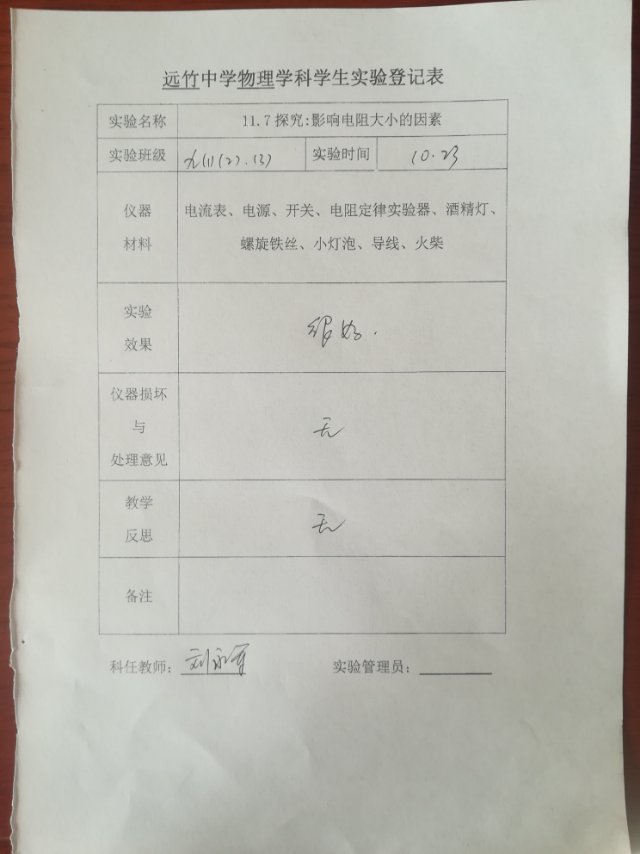 远竹中学物理学科学生实验登记表
实验名称 11.7探究:影响电阻大小的因素
实验班级 九(1)(2).(3) 实验时间 10.23
仪器
材料
电流表、电源、开关、电阻定律实验器、酒精灯、
螺旋铁丝、小灯泡、导线、火柴
实验
效果
很好.
仪器损坏
与
处理意见
无
教学
反思
无
备注
科任教师: 刘永军 实验管理员: